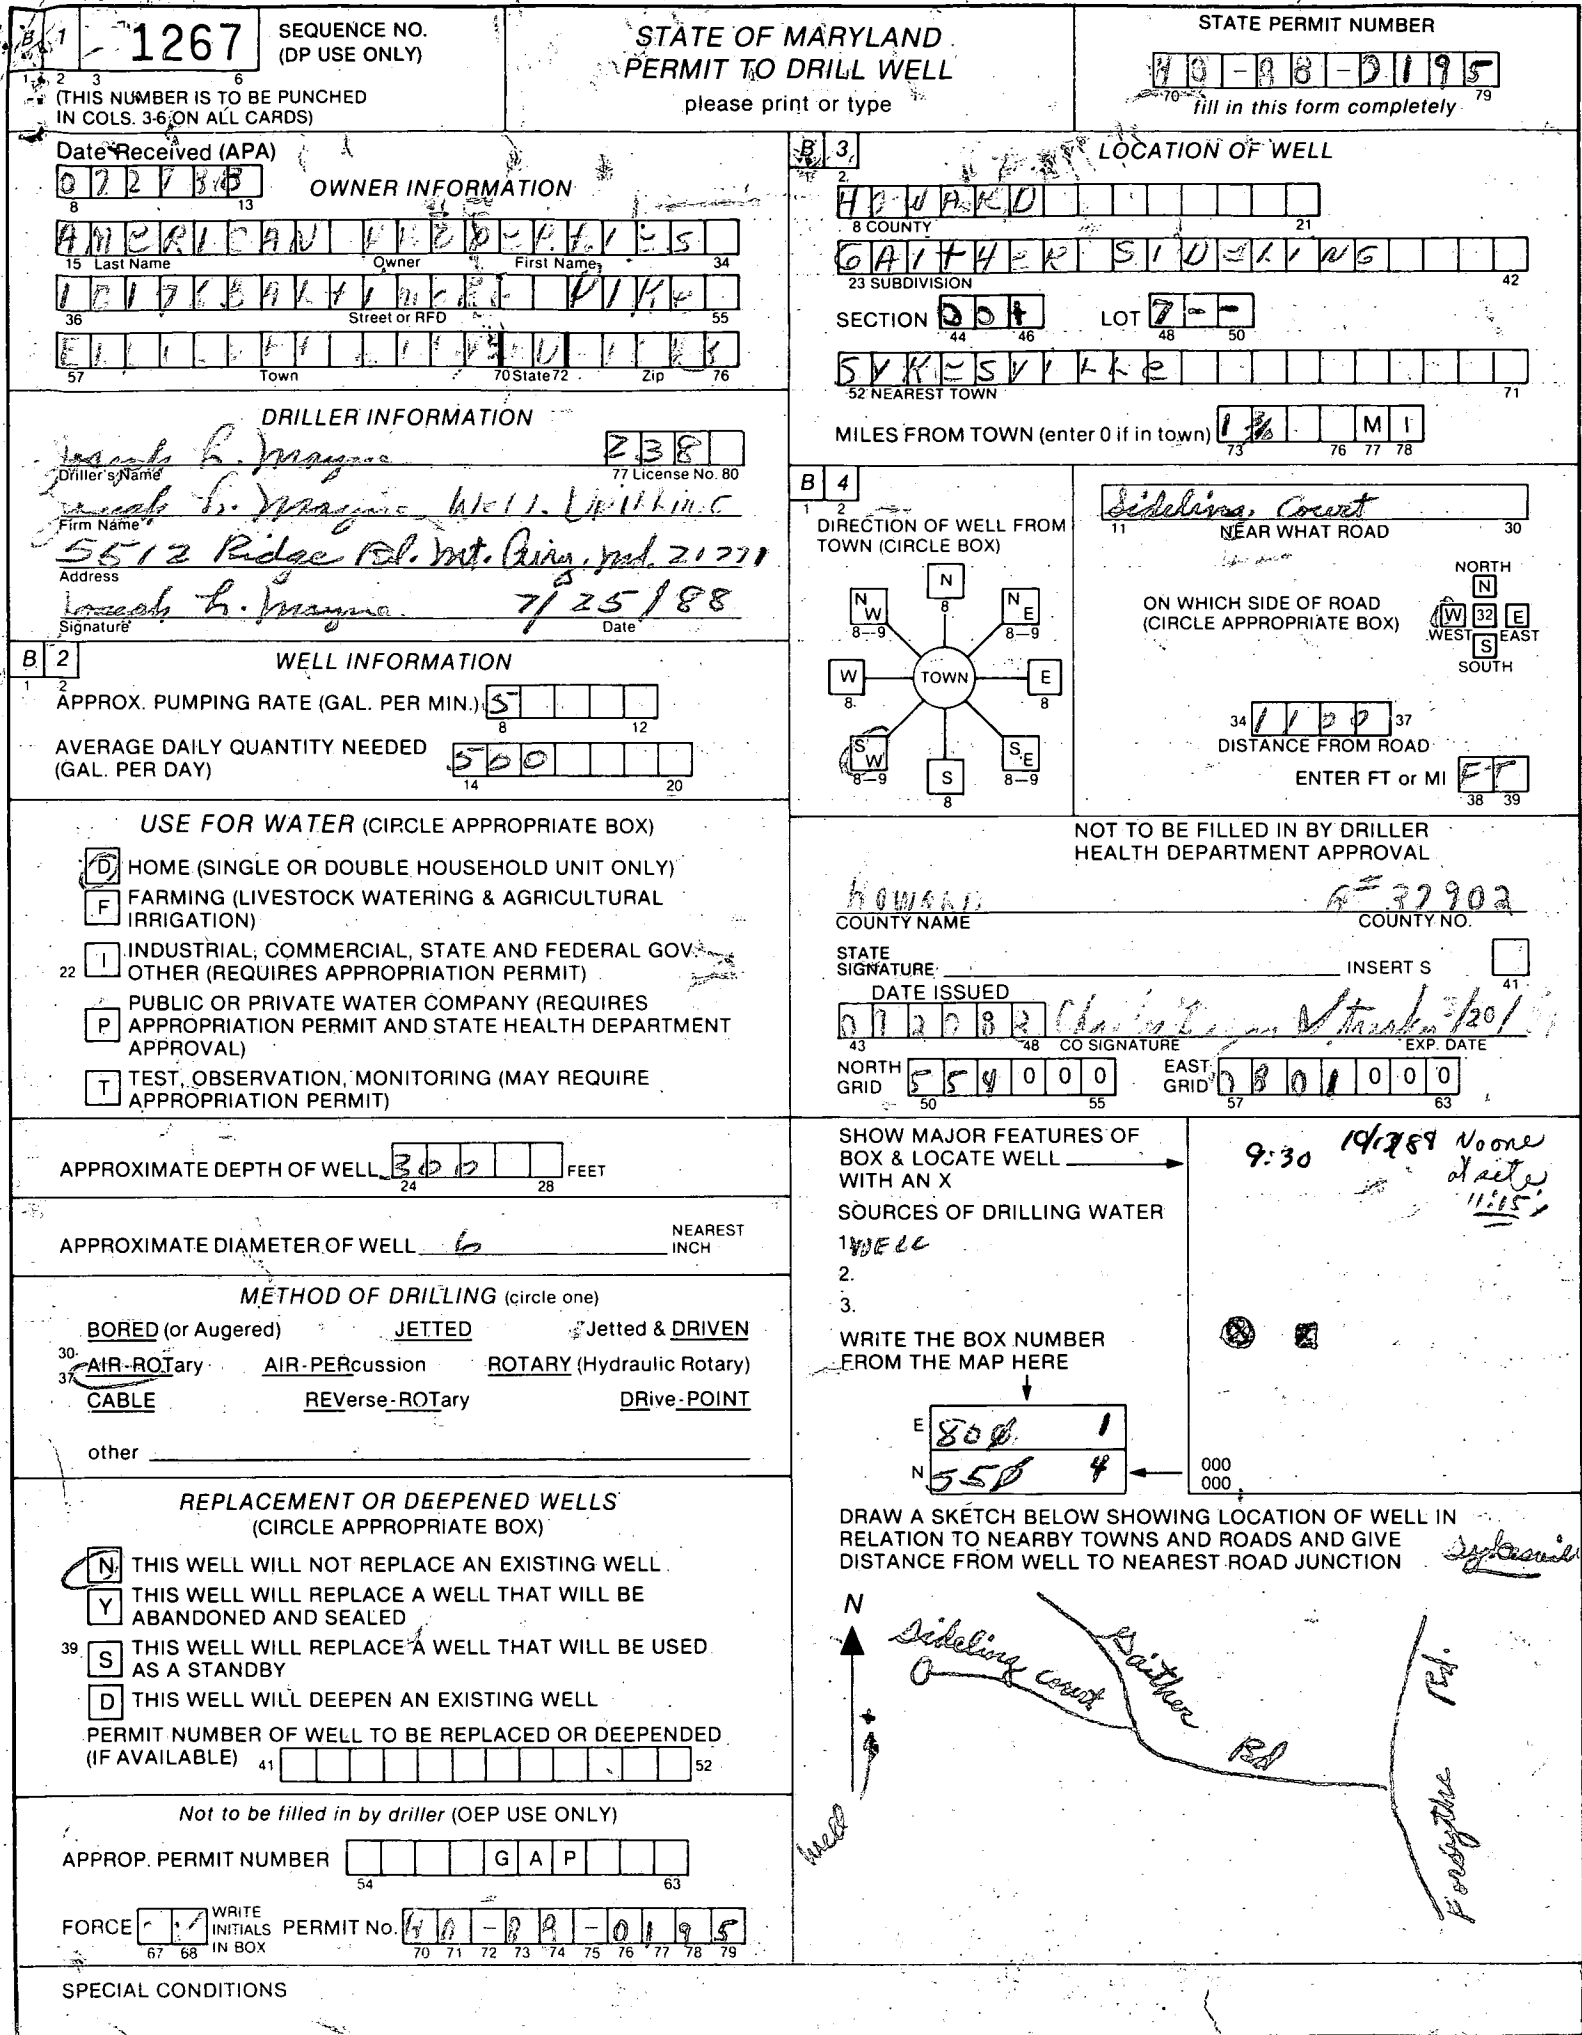 B 1
1267
SEQUENCE NO.
(DP USE ONLY)
1 2 3 6
(THIS NUMBER IS TO BE PUNCHED
IN COLS. 3-6 ON ALL CARDS)
STATE OF MARYLAND
PERMIT TO DRILL WELL
please print or type
STATE PERMIT NUMBER
HO-88-0195
70 79
fill in this form completely
Date Received (APA)
8 13
OWNER INFORMATION
AMERICAN PROPERTIES
15 Last Name Owner First Name 34
BALTIMORE PIKE
36 Street or RFD 55
57 Town 70 State 72 Zip 76
DRILLER INFORMATION
Joseph L. Mayne 238
Driller's Name 77 License No. 80
Joseph L. Mayne Well Drilling
Firm Name
5512 Ridge Rd. Mt. Airy, Md. 21771
Address
Joseph L. Mayne 7/25/88
Signature Date
B 2
1 2
WELL INFORMATION
APPROX. PUMPING RATE (GAL. PER MIN.) 5
8 12
AVERAGE DAILY QUANTITY NEEDED
(GAL. PER DAY) 500
14 20
USE FOR WATER (CIRCLE APPROPRIATE BOX)
D HOME (SINGLE OR DOUBLE HOUSEHOLD UNIT ONLY)
F FARMING (LIVESTOCK WATERING & AGRICULTURAL
IRRIGATION)
22 I INDUSTRIAL, COMMERCIAL, STATE AND FEDERAL GOV.
OTHER (REQUIRES APPROPRIATION PERMIT)
P PUBLIC OR PRIVATE WATER COMPANY (REQUIRES
APPROPRIATION PERMIT AND STATE HEALTH DEPARTMENT
APPROVAL)
T TEST, OBSERVATION, MONITORING (MAY REQUIRE
APPROPRIATION PERMIT)
APPROXIMATE DEPTH OF WELL 300 FEET
24 28
APPROXIMATE DIAMETER OF WELL 6 NEAREST
INCH
METHOD OF DRILLING (circle one)
BORED (or Augered) JETTED Jetted & DRIVEN
30-37 AIR-ROTary AIR-PERcussion ROTARY (Hydraulic Rotary)
CABLE REVerse-ROTary DRive-POINT
other
REPLACEMENT OR DEEPENED WELLS
(CIRCLE APPROPRIATE BOX)
N THIS WELL WILL NOT REPLACE AN EXISTING WELL
Y THIS WELL WILL REPLACE A WELL THAT WILL BE
ABANDONED AND SEALED
39 S THIS WELL WILL REPLACE A WELL THAT WILL BE USED
AS A STANDBY
D THIS WELL WILL DEEPEN AN EXISTING WELL
PERMIT NUMBER OF WELL TO BE REPLACED OR DEEPENDED
(IF AVAILABLE) 41 52
Not to be filled in by driller (OEP USE ONLY)
APPROP. PERMIT NUMBER G A P
54 63
FORCE WRITE
INITIALS
IN BOX PERMIT No. HO-88-0195
67 68 70 71 72 73 74 75 76 77 78 79
SPECIAL CONDITIONS
B 3
2
LOCATION OF WELL
HOWARD
8 COUNTY 21
GAITHER SIDELING
23 SUBDIVISION 42
SECTION LOT 7--
44 46 48 50
SYKESVILLE
52 NEAREST TOWN 71
MILES FROM TOWN (enter 0 if in town) M I
73 76 77 78
B 4
1 2
DIRECTION OF WELL FROM
TOWN (CIRCLE BOX)
N 8
NW 8-9
NE 8-9
W 8
TOWN
E 8
SW 8-9
SE 8-9
S 8
Sideling Court
11 NEAR WHAT ROAD 30
ON WHICH SIDE OF ROAD
(CIRCLE APPROPRIATE BOX)
NORTH
N
W 32 E
WEST EAST
S
SOUTH
34 1100 37
DISTANCE FROM ROAD
ENTER FT or MI FT
38 39
NOT TO BE FILLED IN BY DRILLER
HEALTH DEPARTMENT APPROVAL
HOWARD 37902
COUNTY NAME COUNTY NO.
STATE
SIGNATURE INSERT S
41
DATE ISSUED
43 48 CO SIGNATURE EXP. DATE
NORTH
GRID 554 000
50 55
EAST
GRID 0801 000
57 63
SHOW MAJOR FEATURES OF
BOX & LOCATE WELL
WITH AN X
SOURCES OF DRILLING WATER
1 WELL
2.
3.
WRITE THE BOX NUMBER
FROM THE MAP HERE
E 800 1
N 550 4
000
000
9:30 No one
at site
11:15
DRAW A SKETCH BELOW SHOWING LOCATION OF WELL IN
RELATION TO NEARBY TOWNS AND ROADS AND GIVE
DISTANCE FROM WELL TO NEAREST ROAD JUNCTION
N
Sideling Court
Gaither Rd
Forsythe Rd.
well